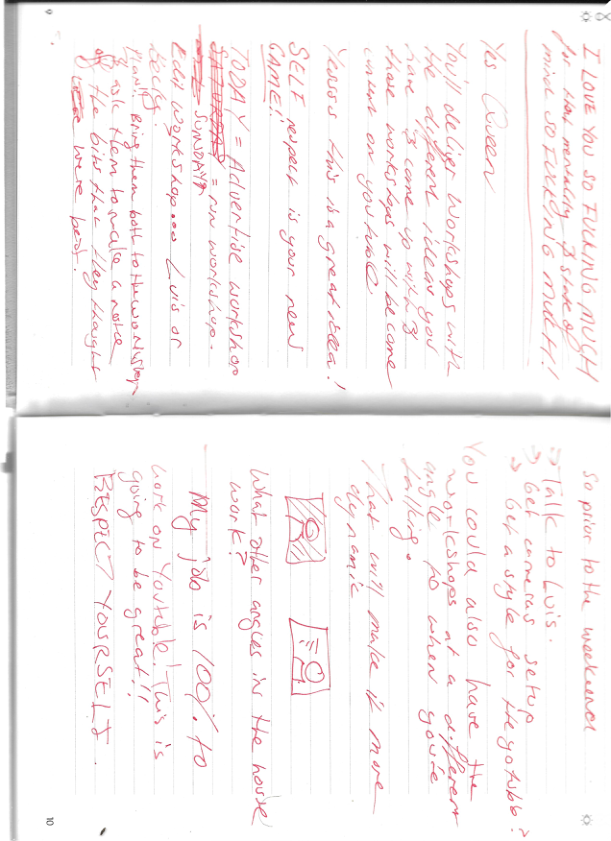 9
I LOVE YOU SO FUCKING MUCH
for that mentality & state of
mind SO FUCKING MUCH!!
Yes Queen
You'll deliver workshops with
the different ideas you
have & come up with &
those workshops will become
content on youtube
Yesss this is a great idea!
SELF respect is your new
GAME!
TODAY = Advertise workshop
= run workshop.
SUNDAY
Each workshop... Luis or
Plan: Bring them both to the workshop
& ask them to make a note
of the bits that they thought
were best.
So prior to the weekend
→ Talk to Luis.
→ Get cameras setup
→ Get a style for the youtube?
You could also have the
workshops at a different
angle so when you're
talking.
That will make it more
dynamic
What other angles in the house
work?
My job is 100% to
work on Youtube! This is
going to be great!!
RESPECT YOURSELF.
10